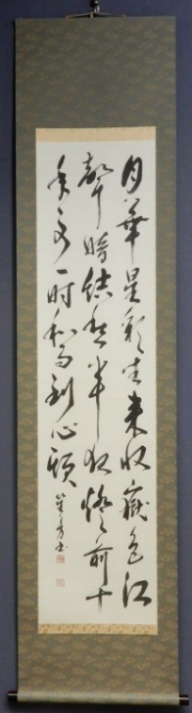 月華星彩坐来收嶽色江
聲暗結愁半夜燈前十
年事一时和雨到心頭